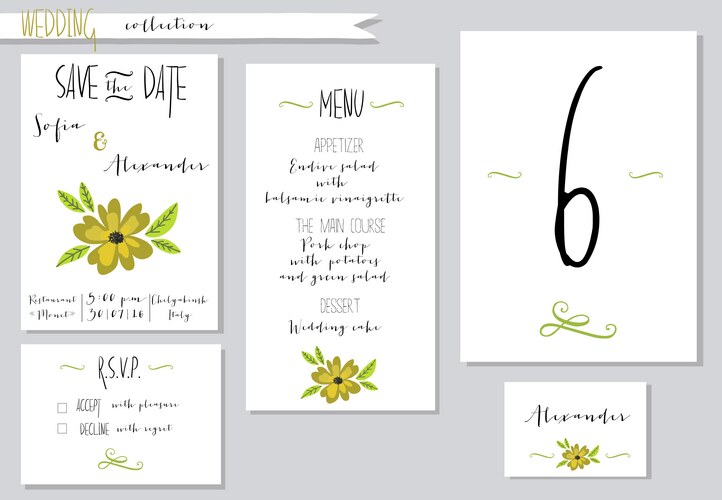 WEDDING collection
SAVE the DATE
Sofia
&
Alexander
Restaurant | 5:00 p.m | Chelyabinsk
«Monet» | 30/07/16 | Italy
R.S.V.P.
ACCEPT with pleasure
DECLINE with regret
MENU
APPETIZER
Endive salad
with
balsamic vinaigrette
THE MAIN COURSE
Pork chop
with potatoes
and green salad
DESSERT
Wedding cake
6
Alexander